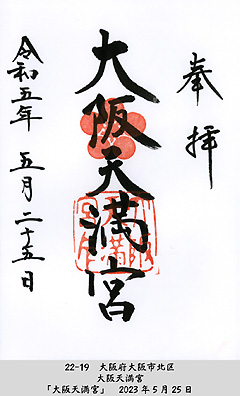 奉拝
大阪天満宮
令和五年 五月二十五日
22-19 大阪府大阪市北区
大阪天満宮
「大阪天満宮」 2023年5月25日